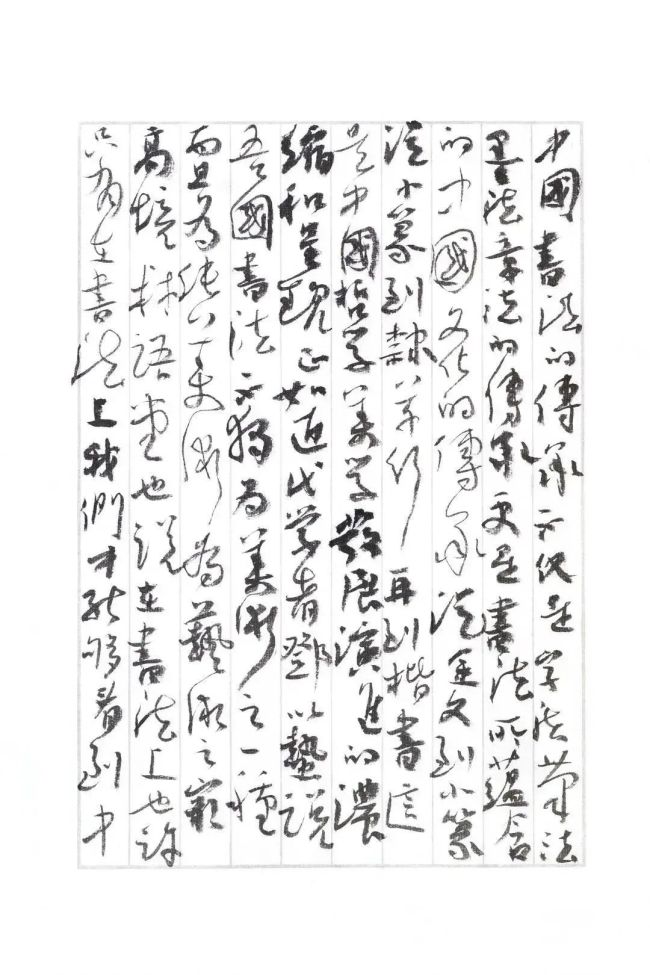 中國書法的傳承不僅是字法筆法
墨法章法的傳承更是書法所蘊含
的中國文化的傳承從金文到小篆
從小篆到隸草行再到楷書這
是中國哲学美学發展演進的濃
縮和呈現正如近代学者鄧以蟄説
吾國書法不獨為美術之一種
而且為純美術為藝術之最
高境林語堂也説在書法上也許
只有在書法上我們才能够看到中